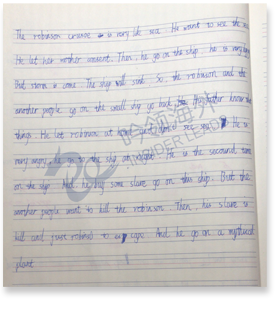 The robinson crusoe is very like sea. He want to see the sea
He let her mother Then, he go on the ship, he is very
But storm is come. The ship will sink. So the robinson and the
another people go on the small ship go back. his father know the
things. He let robinson at home. see sea. He is
very angry. he go to the ship He is the secound time
on the ship. And he buy some slave go on this ship. But the
another people want to kill the robinson. Then, his slave is
kill and just robinson to cape. And he go on a
island
海外
RIDER LEO.CO